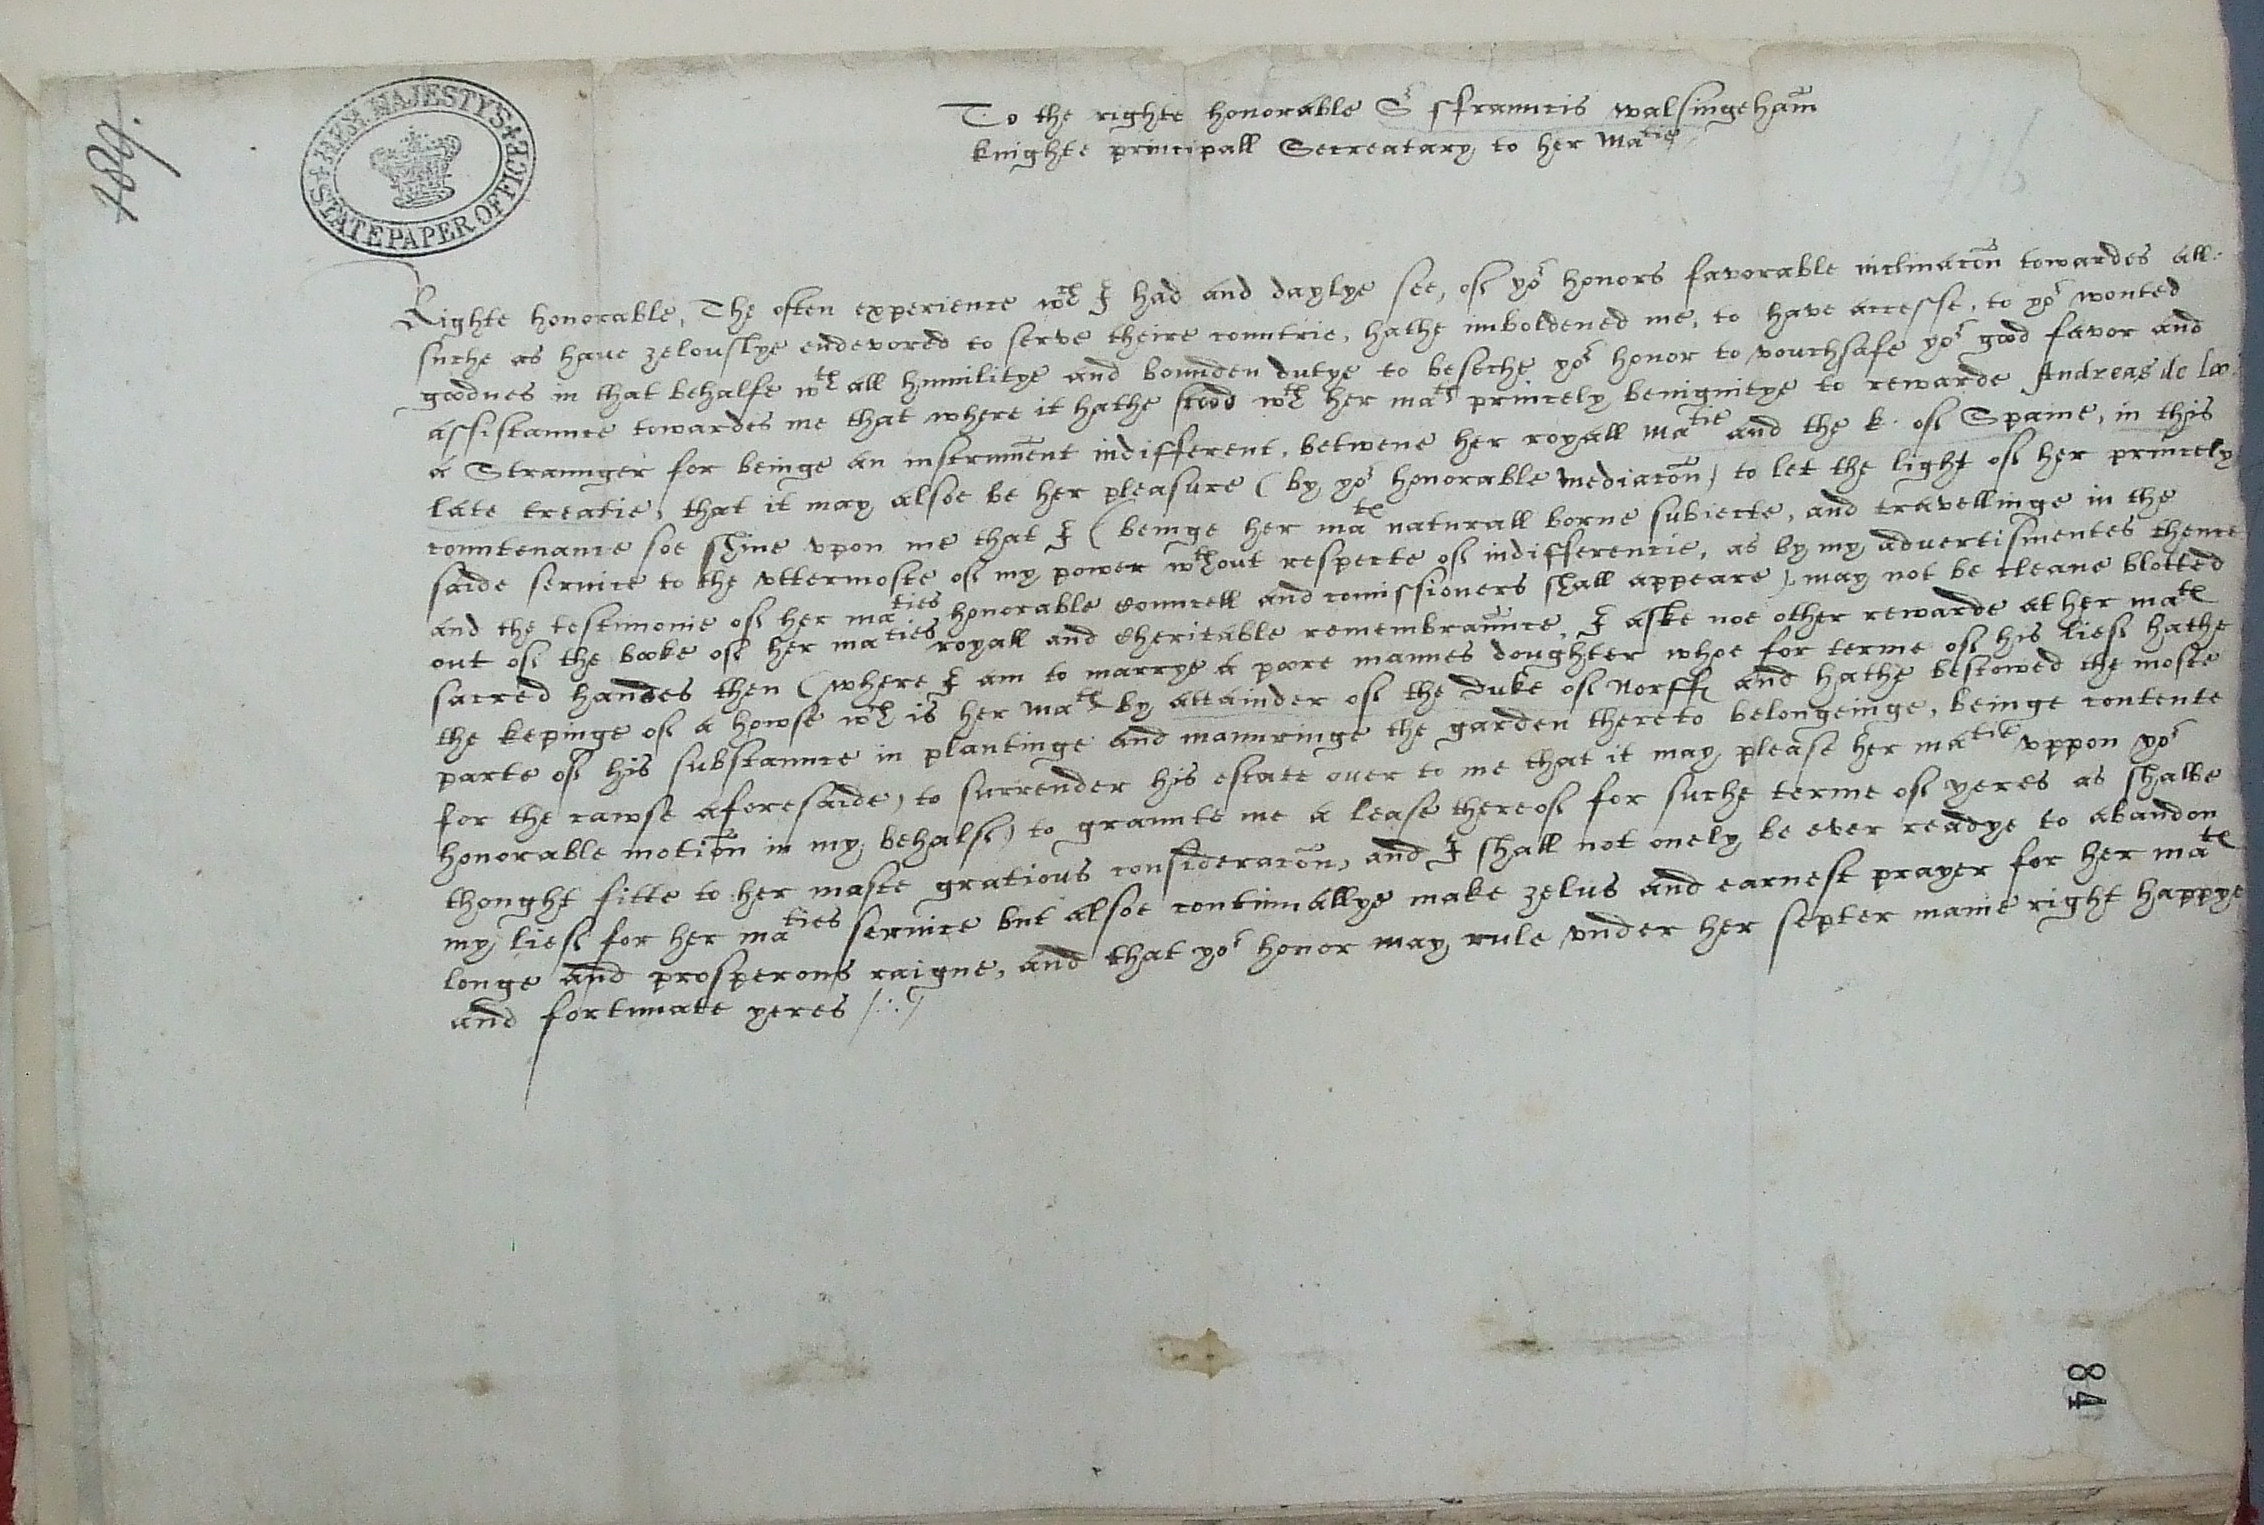 1589.
HER MAJESTY'S STATE PAPER OFFICE
To the righte honorable Sr ffrauncis walsingeham
knighte principall Secreatary to her Matie
Righte honorable, The often experience wch I had and daylye see, of yor honors favorable inclinacon towardes all
suche as haue zelouslye endevored to serve theire countrie, hathe imboldened me, to have accesse, to yor wonted
goodnes in that behalfe wth all humilitye and bounden dutye to beseche yor honor to vouchsafe yor good favor and
assistaunce towardes me that where it hathe stood wth her mats princely benignitye to rewarde Andreas de Loo
a Straunger for beinge an instrument indifferent, betwene her royall Matie and the k. of Spaine, in this
late treatie, that it may alsoe be her pleasure (by yor honorable mediacon) to let the light of her princely
countenance soe shine vpon me that I (beinge her mats naturall borne subiecte, and travellinge in the
saide service to the vttermoste of my power wthout respecte of indifferencie, as by my advertismentes thence
and the testimonie of her maties honorable Councell and comissioners shall appeare) may not be cleane blotted
out of the booke of her maties royall and Cheritable remembraunce, I aske noe other rewarde at her mats
sacred handes then (where I am to marrye a poore mannes doughter whoe for terme of his lief hathe
the kepinge of a howse wch is her Mats by attainder of the Duke of Norff and hathe bestowed the moste
parte of his substaunce in plantinge and manuringe the garden thereto belongeinge, beinge contente
for the cawse aforesaide, to surrender his estate over to me that it may please her matie vppon yor
honorable motion in my behalf) to graunte me a lease thereof for suche terme of yeres as shalbe
thought fitte to her maste gratious consideracon, and I shall not onely be ever readye to abandon
my lief for her maties service but alsoe continuallye make zelus and earnest prayer for her mats
longe and prosperous raigne, and that yor honor may rule vnder her septer manie right happye
and fortunate yeres /:/
84